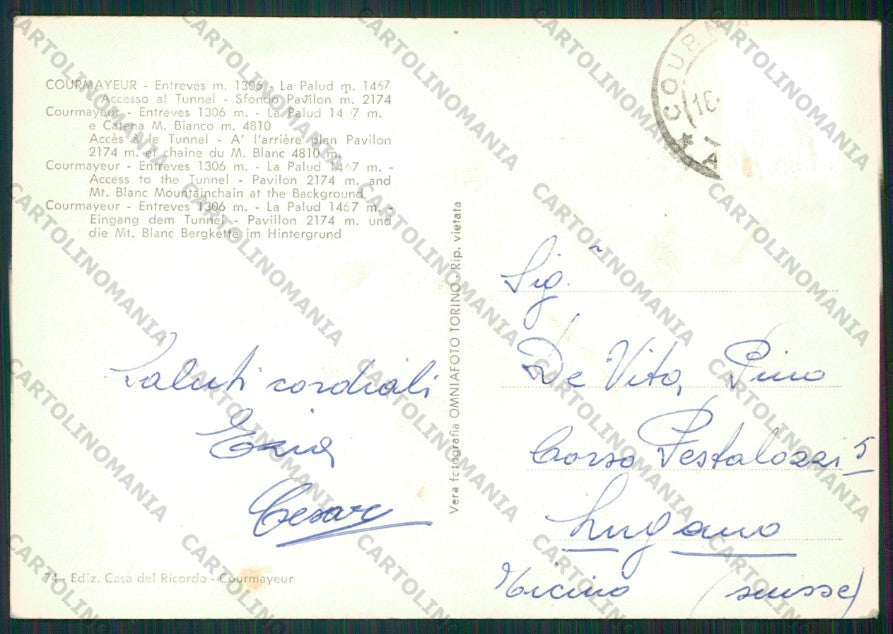 COURMAYEUR - Entreves m. 1306 - La Palud m. 1467
Accesso al Tunnel - Sfondo Pavilon m. 2174
Courmayeur - Entreves 1306 m. - La Palud 14 7 m.
e Catena M. Bianco m. 4810
Accès à le Tunnel - A' l'arrière plan Pavilon
2174 m. et chaine du M. Blanc 4810 m.
Courmayeur - Entreves 1306 m. - La Palud 1467 m. -
Access to the Tunnel - Pavilon 2174 m. and
Mt. Blanc Mountainchain at the Background
Courmayeur - Entreves 1306 m. - La Palud 1467 m. -
Eingang dem Tunnel - Pavillon 2174 m. und
die Mt. Blanc Bergkette im Hintergrund
Saluti cordiali
Ezia
Cesar
74 - Ediz. Casa del Ricordo - Courmayeur
Vera fotografia OMNIAFOTO TORINO - Rip. vietata
COURM
Sig.
De Vita, Pino
Corso Pestalozzi 5
Lugano
Ticino (suisse)
CARTOLINOMANIA